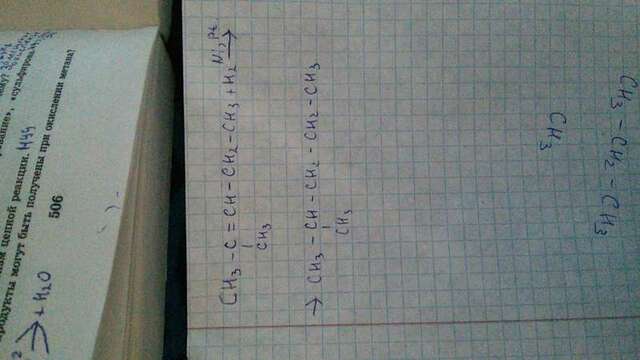 цепной реакции. НЧЧ
», «сульфирова
продукты могут быть получены при окислении метана?
+ H₂O
506
CH₃ - C = CH - CH₂ - CH₃ + H₂ Ni, Pt →
CH₃
→ CH₃ - CH - CH₂ - CH₂ - CH₃
CH₃
CH₃
CH₃ - CH₂ - CH₃